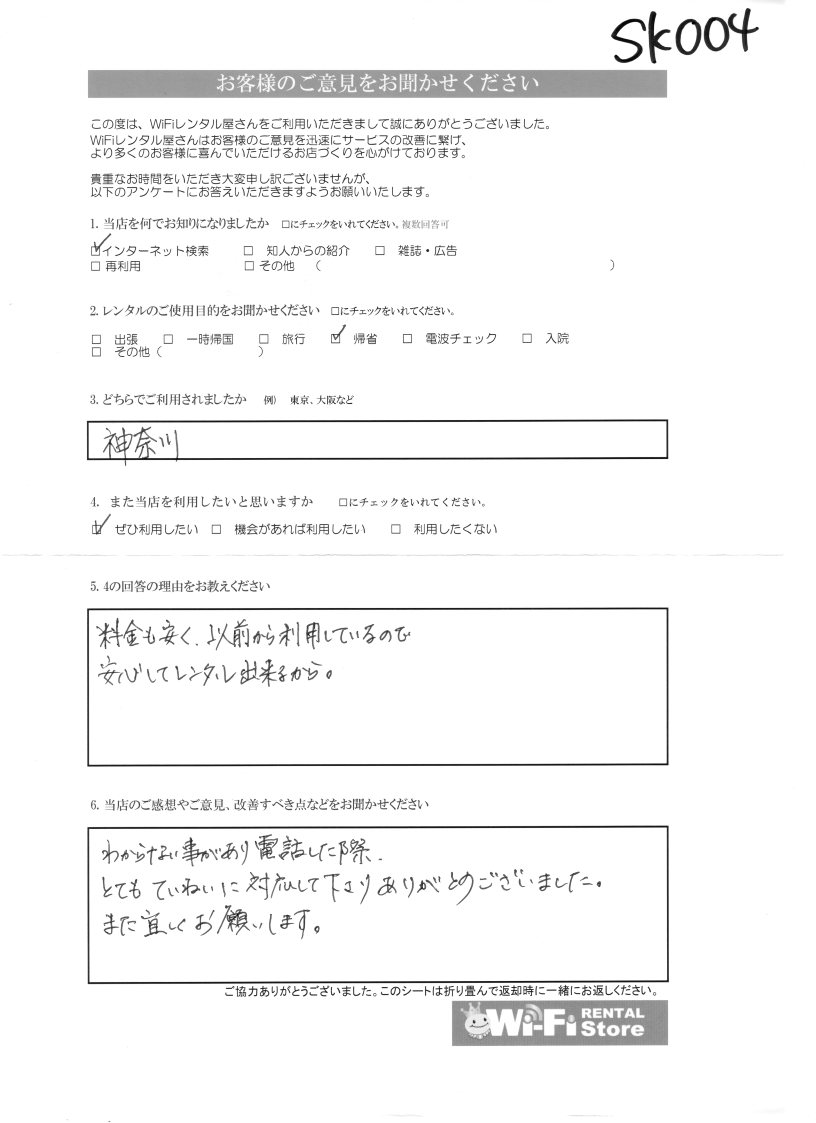 SK004
お客様のご意見をお聞かせください
この度は、WiFiレンタル屋さんをご利用いただきまして誠にありがとうございました。
WiFiレンタル屋さんはお客様のご意見を迅速にサービスの改善に繋げ、
より多くのお客様に喜んでいただけるお店づくりを心がけております。
貴重なお時間をいただき大変申し訳ございませんが、
以下のアンケートにお答えいただきますようお願いいたします。
1. 当店を何でお知りになりましたか □にチェックをいれてください。複数回答可
☑インターネット検索 □ 知人からの紹介 □ 雑誌・広告
□ 再利用 □ その他 ( )
2. レンタルのご使用目的をお聞かせください □にチェックをいれてください。
□ 出張 □ 一時帰国 □ 旅行 ☑ 帰省 □ 電波チェック □ 入院
□ その他 ( )
3. どちらでご利用されましたか 例) 東京、大阪など
神奈川
4. また当店を利用したいと思いますか □にチェックをいれてください。
☑ ぜひ利用したい □ 機会があれば利用したい □ 利用したくない
5. 4の回答の理由をお教えください
料金も安く、以前から利用しているので
安心してレンタル出来るから。
6. 当店のご感想やご意見、改善すべき点などをお聞かせください
わからない事があり電話した際、
とても ていねいに 対応して下さり ありがとうございました。
また宜しくお願いします。
ご協力ありがとうございました。このシートは折り畳んで返却時に一緒にお返しください。
Wi-Fi RENTAL Store